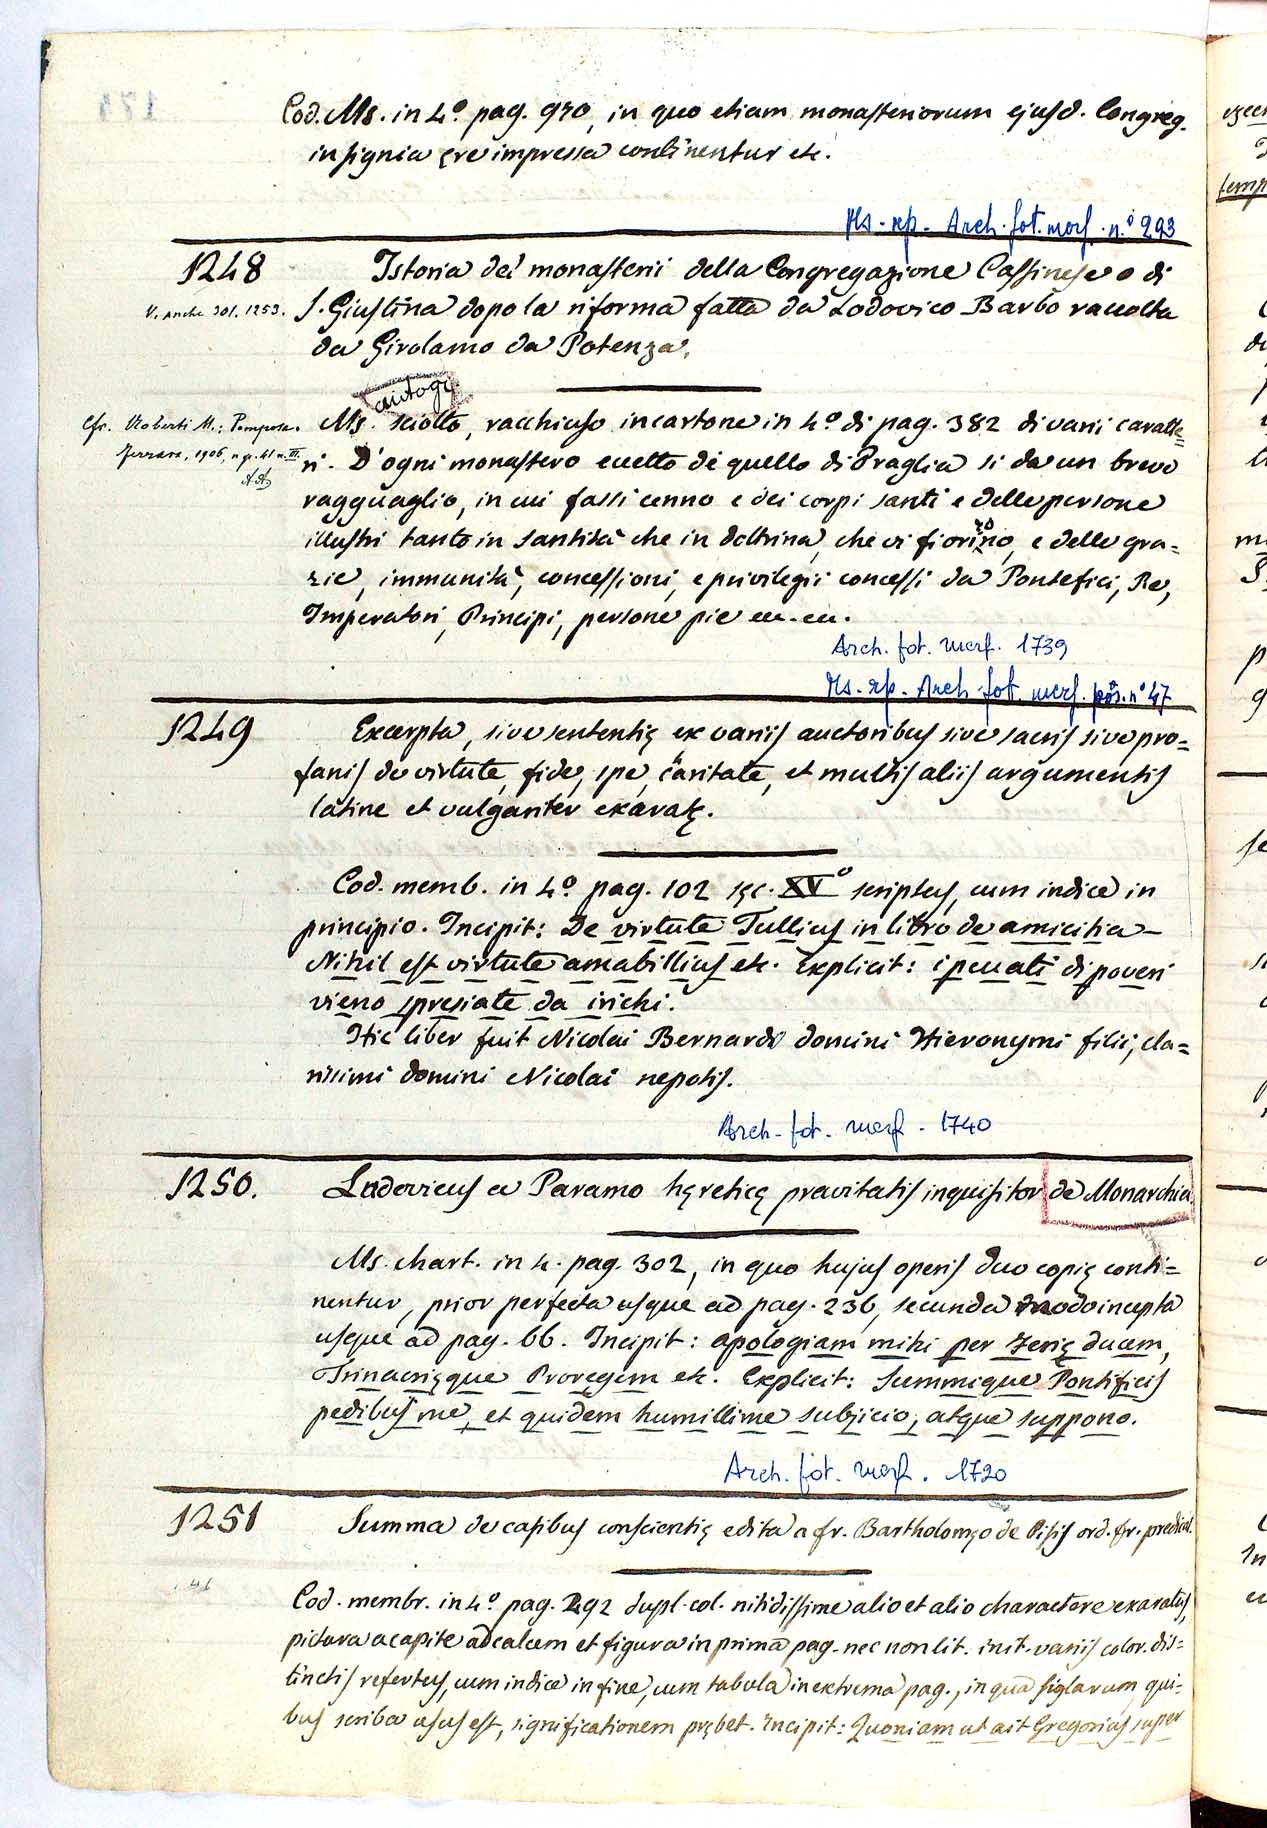 Cod. Ms. in 4º. pag. 970, in quo etiam monasteriorum ejusd. Congreg.
insignia ęre impressa continentur etc.
Ms. rip. Arch. fot. marf. n.º 293
1248 Istoria dei monasterii della Congregazione Cassinese o di
V. anche vol. 1253. S. Giustina dopo la riforma fatta da Lodovico Barbo raccolta
da Girolamo da Potenza.
autogr
Cfr. Roberti M.: Pomposa. Ms. sciolto, racchiuso in cartone in 4º di pag. 382 di varii caratte=
Ferrara, 1906, a p. 41 n. III. ri. D'ogni monastero eccetto di quello di Praglia si da un breve
ragguaglio, in cui fassi cenno e dei corpi santi e delle persone
illustri tanto in santità che in dottrina, che vi fiorirono, e delle gra=
zie, immunità, concessioni, e privilegii concessi da Pontefici, Re,
Imperatori, Principi, persone pie ec. ec.
Arch. fot. marf. 1739
Ms. rip. Arch. fot. marf. pos. nº 47
1249 Excerpta, sive sententię ex variis auctoribus sive sacris sive pro=
fanis de virtute, fide, spe, caritate, et multis aliis argumentis
latine et vulgariter exaratę.
Cod. memb. in 4º. pag. 102 sęc. XVº scriptus, cum indice in
principio. Incipit: De virtute Tullius in libro de amicitia –
Nihil est virtute amabillius etc. Explicit: i peccati di poveri
vieno spresiate da i richi.
Hic liber fuit Nicolai Bernardi domini Hieronymi filii, cla=
rissimi domini Nicolai nepotis.
Arch. fot. marf. 1740
1250. Ludovicus a Paramo hęreticę pravitatis inquisitor de Monarchia.
Ms. chart. in 4. pag. 302, in quo hujus operis duo copię conti=
nentur, prior perfecta usque ad pag. 236, secunda modo incepta
usque ad pag. 66. Incipit: apologiam mihi per Ferię ducem,
Trinacrięque Proregem etc. Explicit: Summique Pontificis
pedibus me, et quidem humillime subjicio, atque suppono.
Arch. fot. marf. 1720
1251 Summa de casibus conscientię edita a fr. Bartholomęo de Pisis ord. fr. predicat.
Cod. membr. in 4º. pag. 292 dupl. col. nitidissime alio et alio charactere exaratus,
pictura a capite ad calcem et figura in prima pag. nec non lit. init. variis color. dis=
tinctis refertus, cum indice in fine, cum tabula in extrema pag., in qua siglarum, qui=
bus scriba usus est, significationem prębet. Incipit: Quoniam ut ait Gregorius super